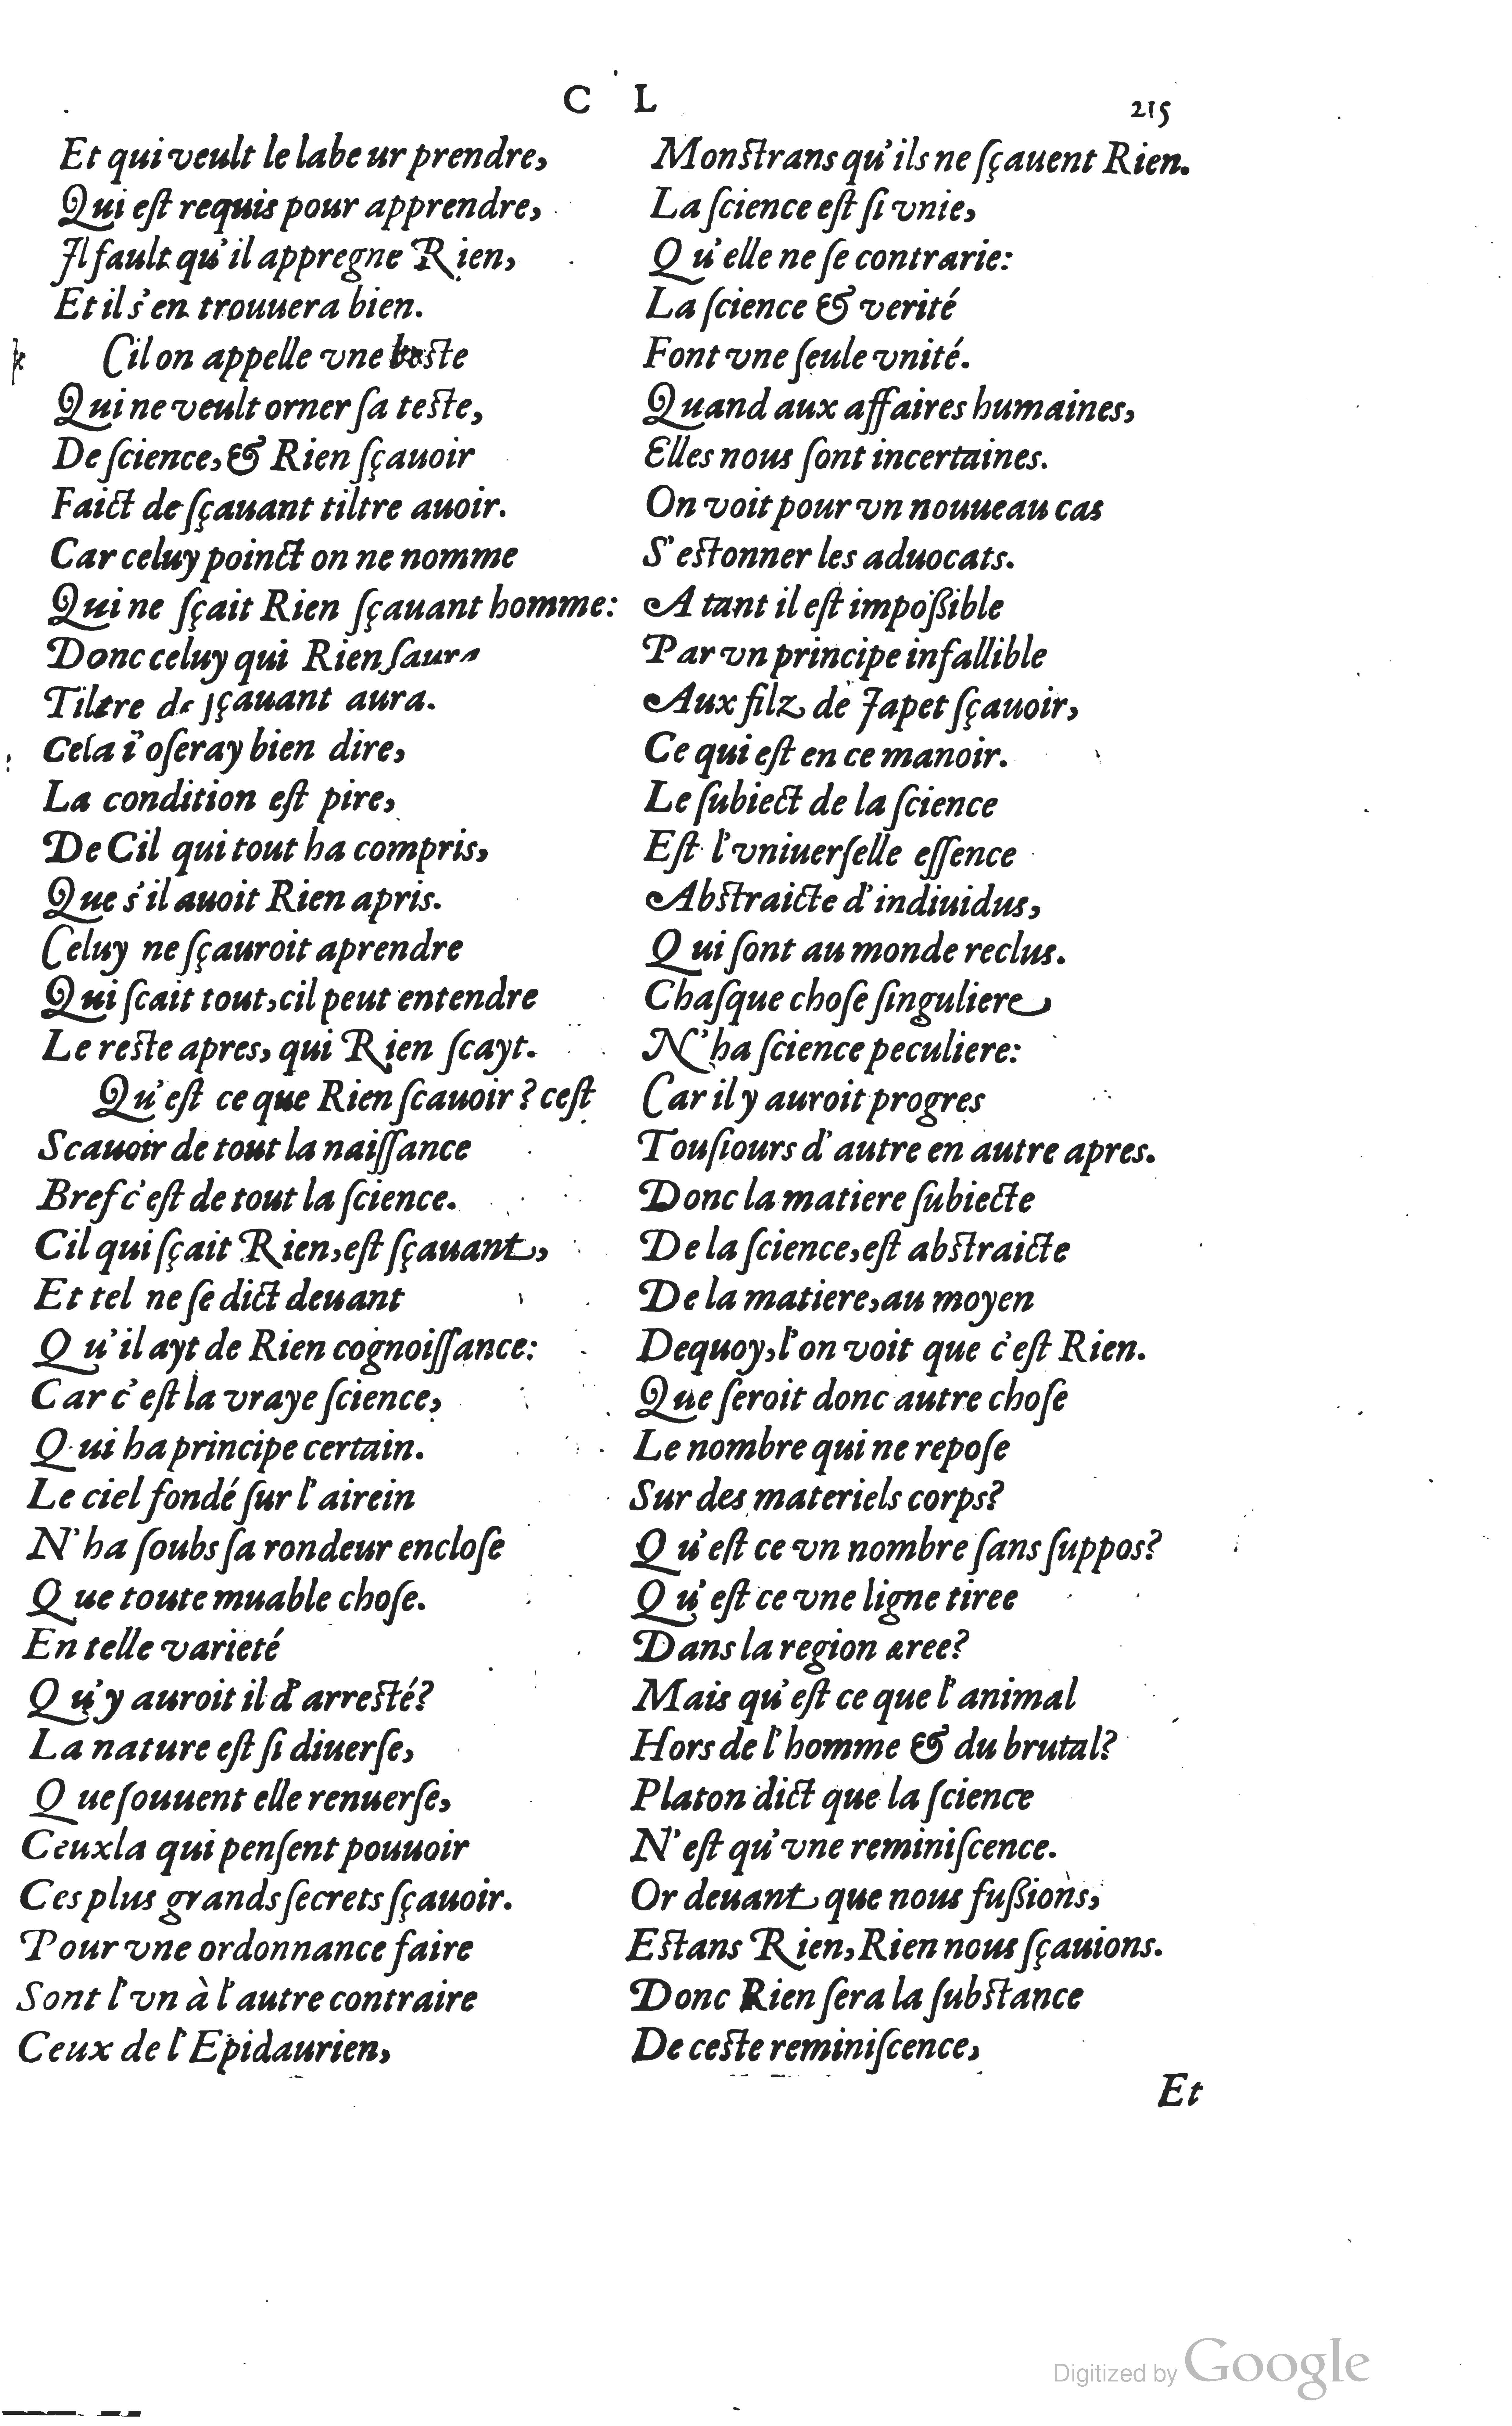 C L
215
Et qui veult le labeur prendre,
Qui eſt requis pour apprendre,
Il fault qu'il appregne Rien,
Et il s'en trouuera bien.
Cil on appelle vne beste
Qui ne veult orner ſa teste,
De ſcience, & Rien ſçauoir
Faict de ſçauant tiltre auoir.
Car celuy poinct on ne nomme
Qui ne ſçait Rien ſçauant homme:
Donc celuy qui Rien ſaura
Tiltre de ſçauant aura.
Cela i'oſeray bien dire,
La condition eſt pire,
De Cil qui tout ha compris,
Que s'il auoit Rien apris.
Celuy ne ſçauroit aprendre
Qui ſcait tout, cil peut entendre
Le reste apres, qui Rien ſcayt.
Qu'eſt ce que Rien ſcauoir? ceſt
Scauoir de tout la naiſſance
Bref c'eſt de tout la ſcience.
Cil qui ſçait Rien, eſt ſçauant,
Et tel ne ſe dict deuant
Qu'il ayt de Rien cognoiſſance:
Car c'eſt la vraye ſcience,
Qui ha principe certain.
Le ciel fondé ſur l'airein
N'ha ſoubs ſa rondeur encloſe
Que toute muable choſe.
En telle varieté
Qu'y auroit il d'arresté?
La nature eſt ſi diuerſe,
Que ſouuent elle renuerſe,
Ceux la qui penſent pouuoir
Ces plus grands ſecrets ſçauoir.
Pour vne ordonnance faire
Sont l'vn à l'autre contraire
Ceux de l'Epidaurien,
Monstrans qu'ils ne ſçauent Rien.
La ſcience eſt ſi vnie,
Qu'elle ne ſe contrarie:
La ſcience & verité
Font vne ſeule vnité.
Quand aux affaires humaines,
Elles nous ſont incertaines.
On voit pour vn nouueau cas
S'estonner les aduocats.
A tant il eſt impoßible
Par vn principe infallible
Aux filz de Japet ſçauoir,
Ce qui eſt en ce manoir.
Le ſubiect de la ſcience
Eſt l'vniuerſelle eſſence
Abstraicte d'indiuidus,
Qui ſont au monde reclus.
Chaſque choſe ſinguliere,
N'ha ſcience peculiere:
Car il y auroit progres
Touſiours d'autre en autre apres.
Donc la matiere ſubiecte
De la ſcience, eſt abstraicte
De la matiere, au moyen
Dequoy, l'on voit que c'eſt Rien.
Que ſeroit donc autre choſe
Le nombre qui ne repoſe
Sur des materiels corps?
Qu'eſt ce vn nombre ſans ſuppos?
Qu'eſt ce vne ligne tiree
Dans la region aree?
Mais qu'eſt ce que l'animal
Hors de l'homme & du brutal?
Platon dict que la ſcience
N'eſt qu'vne reminiſcence.
Or deuant que nous fußions,
Estans Rien, Rien nous ſçauions.
Donc Rien ſera la ſubstance
De ceste reminiſcence,
Et
Digitized by Google